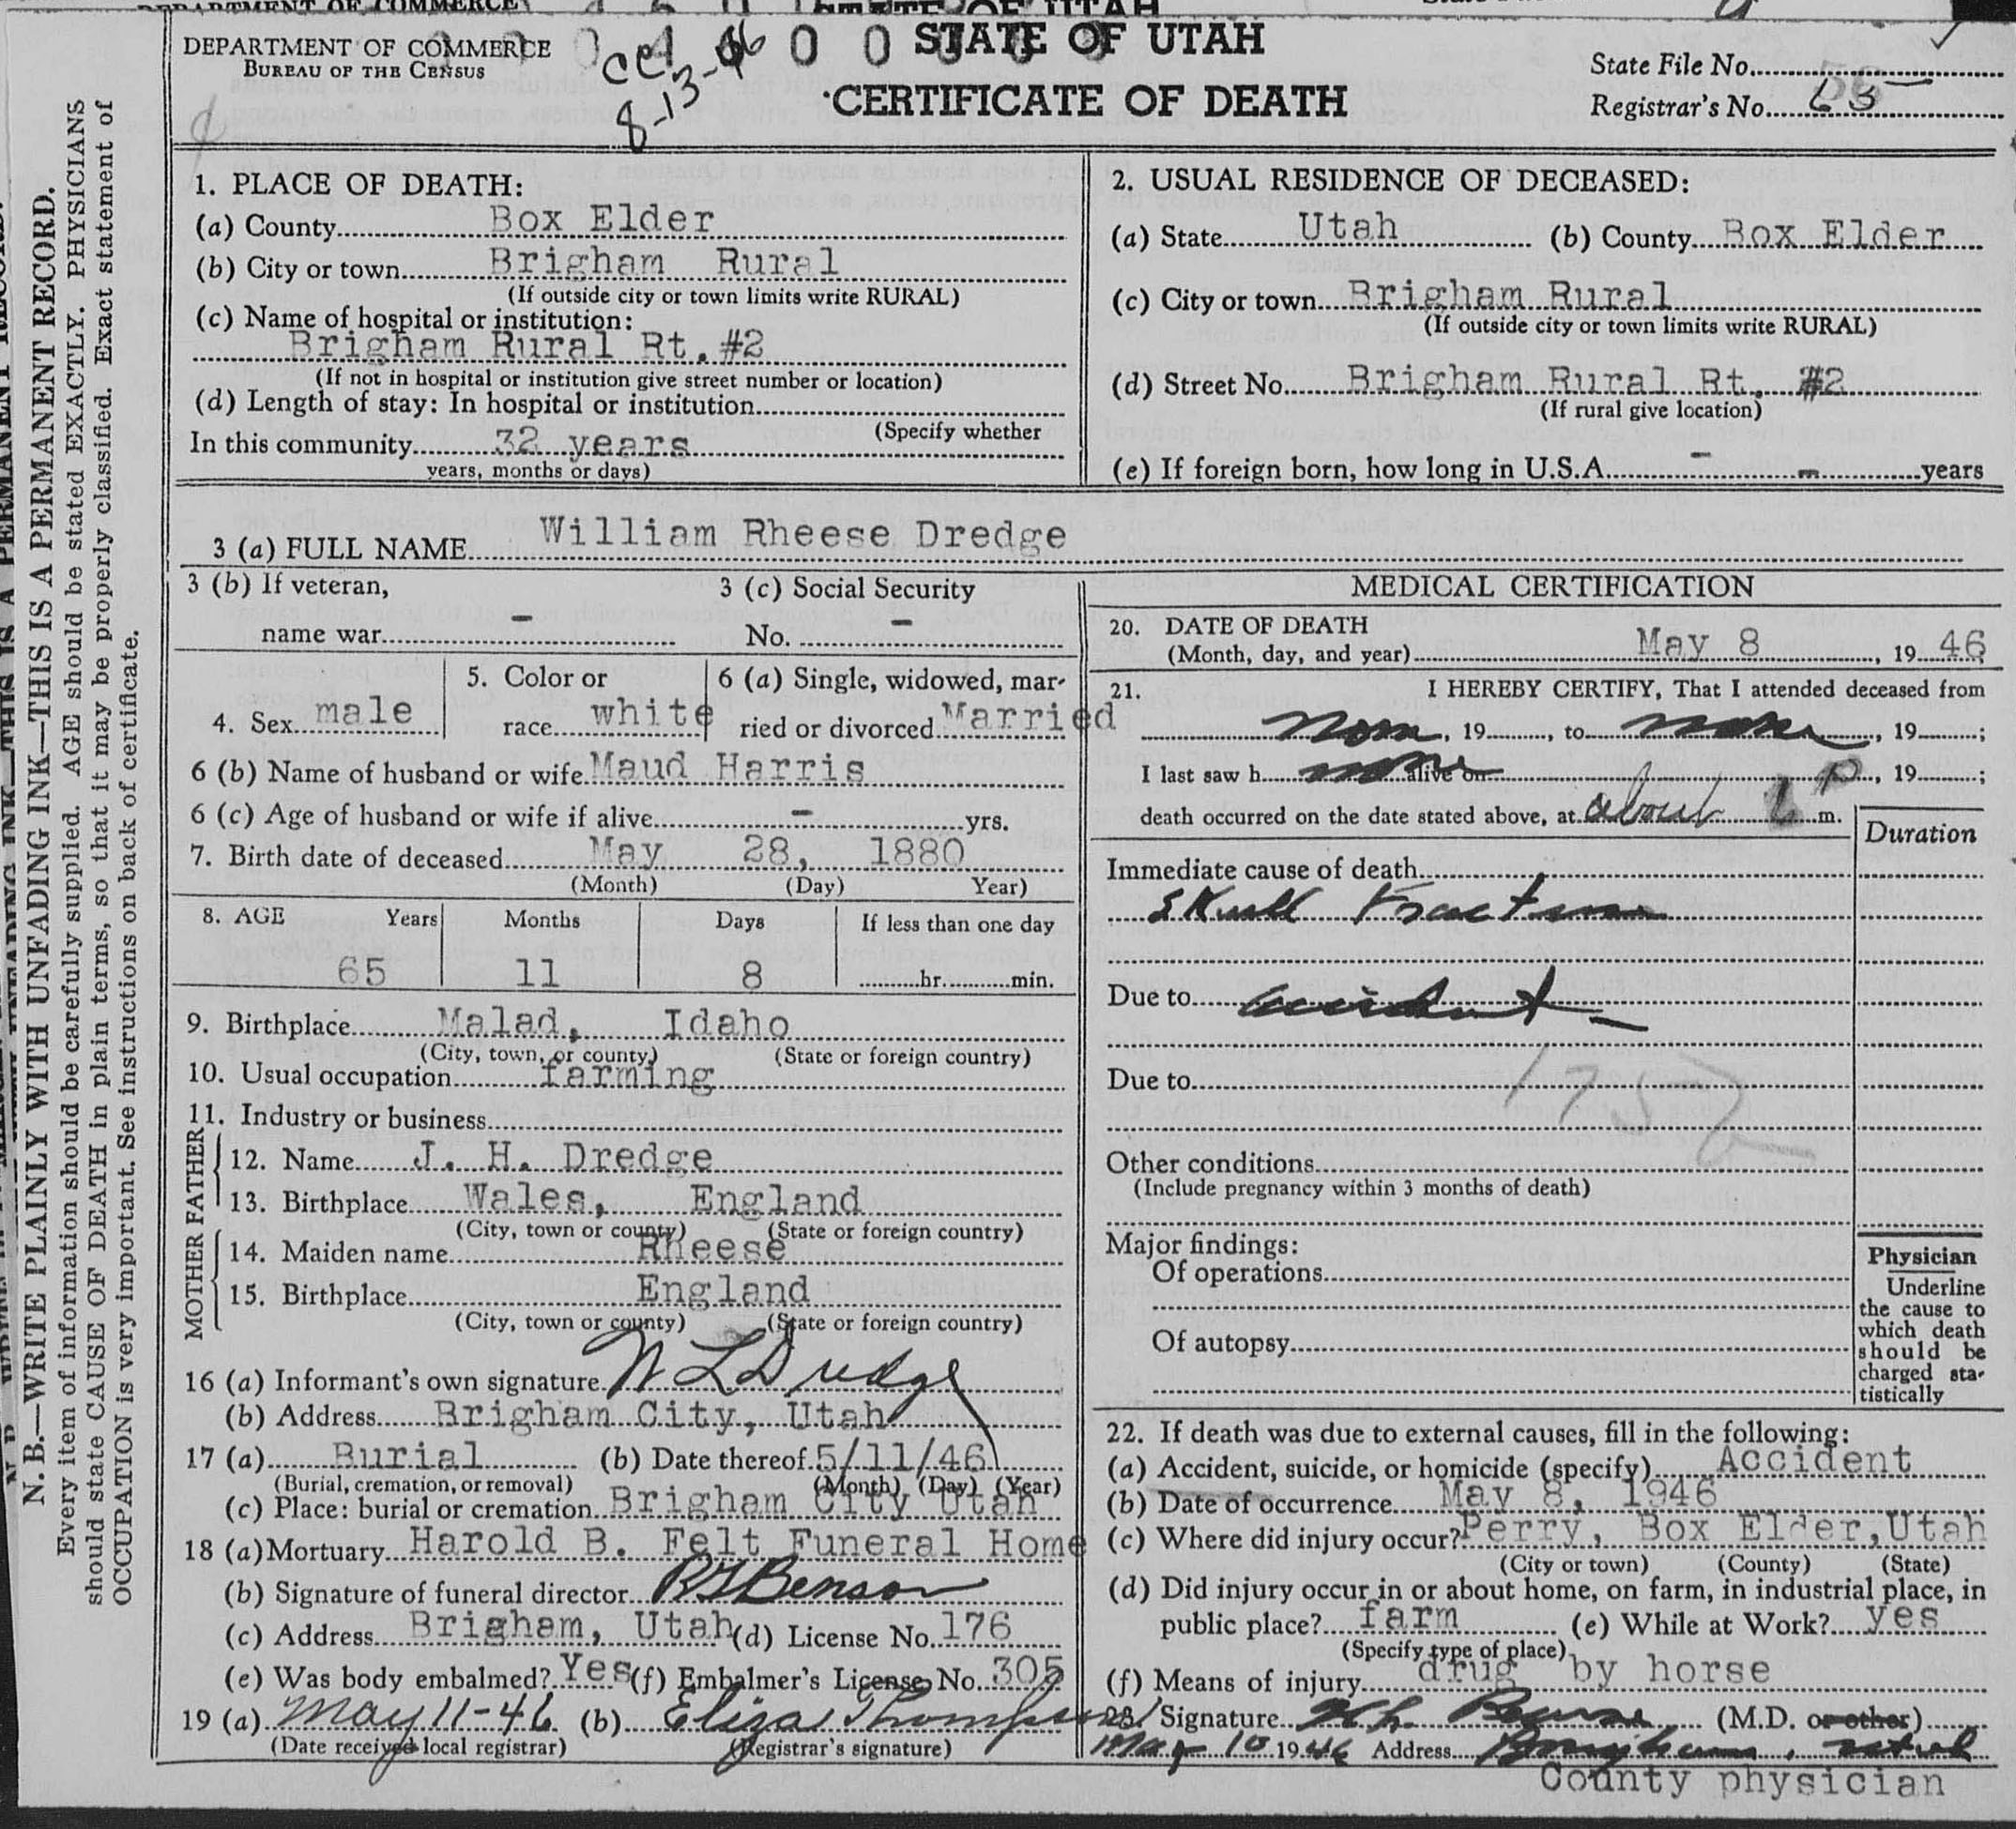 STATE OF UTAH
DEPARTMENT OF COMMERCE
BUREAU OF THE CENSUS
8-13-46
CERTIFICATE OF DEATH
State File No.
Registrar's No.
N. B.—WRITE PLAINLY WITH UNFADING INK—THIS IS A PERMANENT RECORD.
Every item of information should be carefully supplied. AGE should be stated EXACTLY. PHYSICIANS
should state CAUSE OF DEATH in plain terms, so that it may be properly classified. Exact statement of
OCCUPATION is very important. See instructions on back of certificate.
1. PLACE OF DEATH:
(a) County Box Elder
(b) City or town Brigham Rural
(If outside city or town limits write RURAL)
(c) Name of hospital or institution:
Brigham Rural Rt. #2
(If not in hospital or institution give street number or location)
(d) Length of stay: In hospital or institution
(Specify whether
In this community 32 years
years, months or days)
2. USUAL RESIDENCE OF DECEASED:
(a) State Utah (b) County Box Elder
(c) City or town Brigham Rural
(If outside city or town limits write RURAL)
(d) Street No. Brigham Rural Rt. #2
(If rural give location)
(e) If foreign born, how long in U.S.A. - - years
3 (a) FULL NAME William Rheese Dredge
3 (b) If veteran,
name war -
3 (c) Social Security
No. -
4. Sex male
5. Color or
race white
6 (a) Single, widowed, mar-
ried or divorced Married
6 (b) Name of husband or wife Maud Harris
6 (c) Age of husband or wife if alive - yrs.
7. Birth date of deceased May 28, 1880
(Month) (Day) Year)
8. AGE Years Months Days If less than one day
65 11 8 hr. min.
9. Birthplace Malad, Idaho
(City, town, or county) (State or foreign country)
10. Usual occupation farming
11. Industry or business
FATHER
12. Name J. H. Dredge
13. Birthplace Wales, England
(City, town or county) (State or foreign country)
MOTHER
14. Maiden name Rheese
15. Birthplace England
(City, town or county) (State or foreign country)
16 (a) Informant's own signature W L Dredge
(b) Address Brigham City, Utah
17 (a) Burial (b) Date thereof 5/11/46
(Burial, cremation, or removal) (Month) (Day) (Year)
(c) Place: burial or cremation Brigham City Utah
18 (a) Mortuary Harold B. Felt Funeral Home
(b) Signature of funeral director Benson
(c) Address Brigham, Utah (d) License No. 176
(e) Was body embalmed? Yes (f) Embalmer's License No. 305
19 (a) May 11-46 (b) Eliza Thompson
(Date received local registrar) (Registrar's signature)
MEDICAL CERTIFICATION
20. DATE OF DEATH
(Month, day, and year) May 8, 1946
21. I HEREBY CERTIFY, That I attended deceased from
none, 19, to none, 19;
I last saw h none alive on, 19;
death occurred on the date stated above, at about P m.
Duration
Immediate cause of death
Skull Fracture
Due to accident
Due to
Other conditions
(Include pregnancy within 3 months of death)
Major findings:
Of operations
Of autopsy
Physician
Underline
the cause to
which death
should be
charged sta-
tistically
22. If death was due to external causes, fill in the following:
(a) Accident, suicide, or homicide (specify) Accident
(b) Date of occurrence May 8, 1946
(c) Where did injury occur? Perry, Box Elder, Utah
(City or town) (County) (State)
(d) Did injury occur in or about home, on farm, in industrial place, in
public place? farm (e) While at Work? yes
(Specify type of place)
(f) Means of injury drug by horse
23. Signature (M.D. or other)
May 10 1946 Address Brigham, Utah
County physician